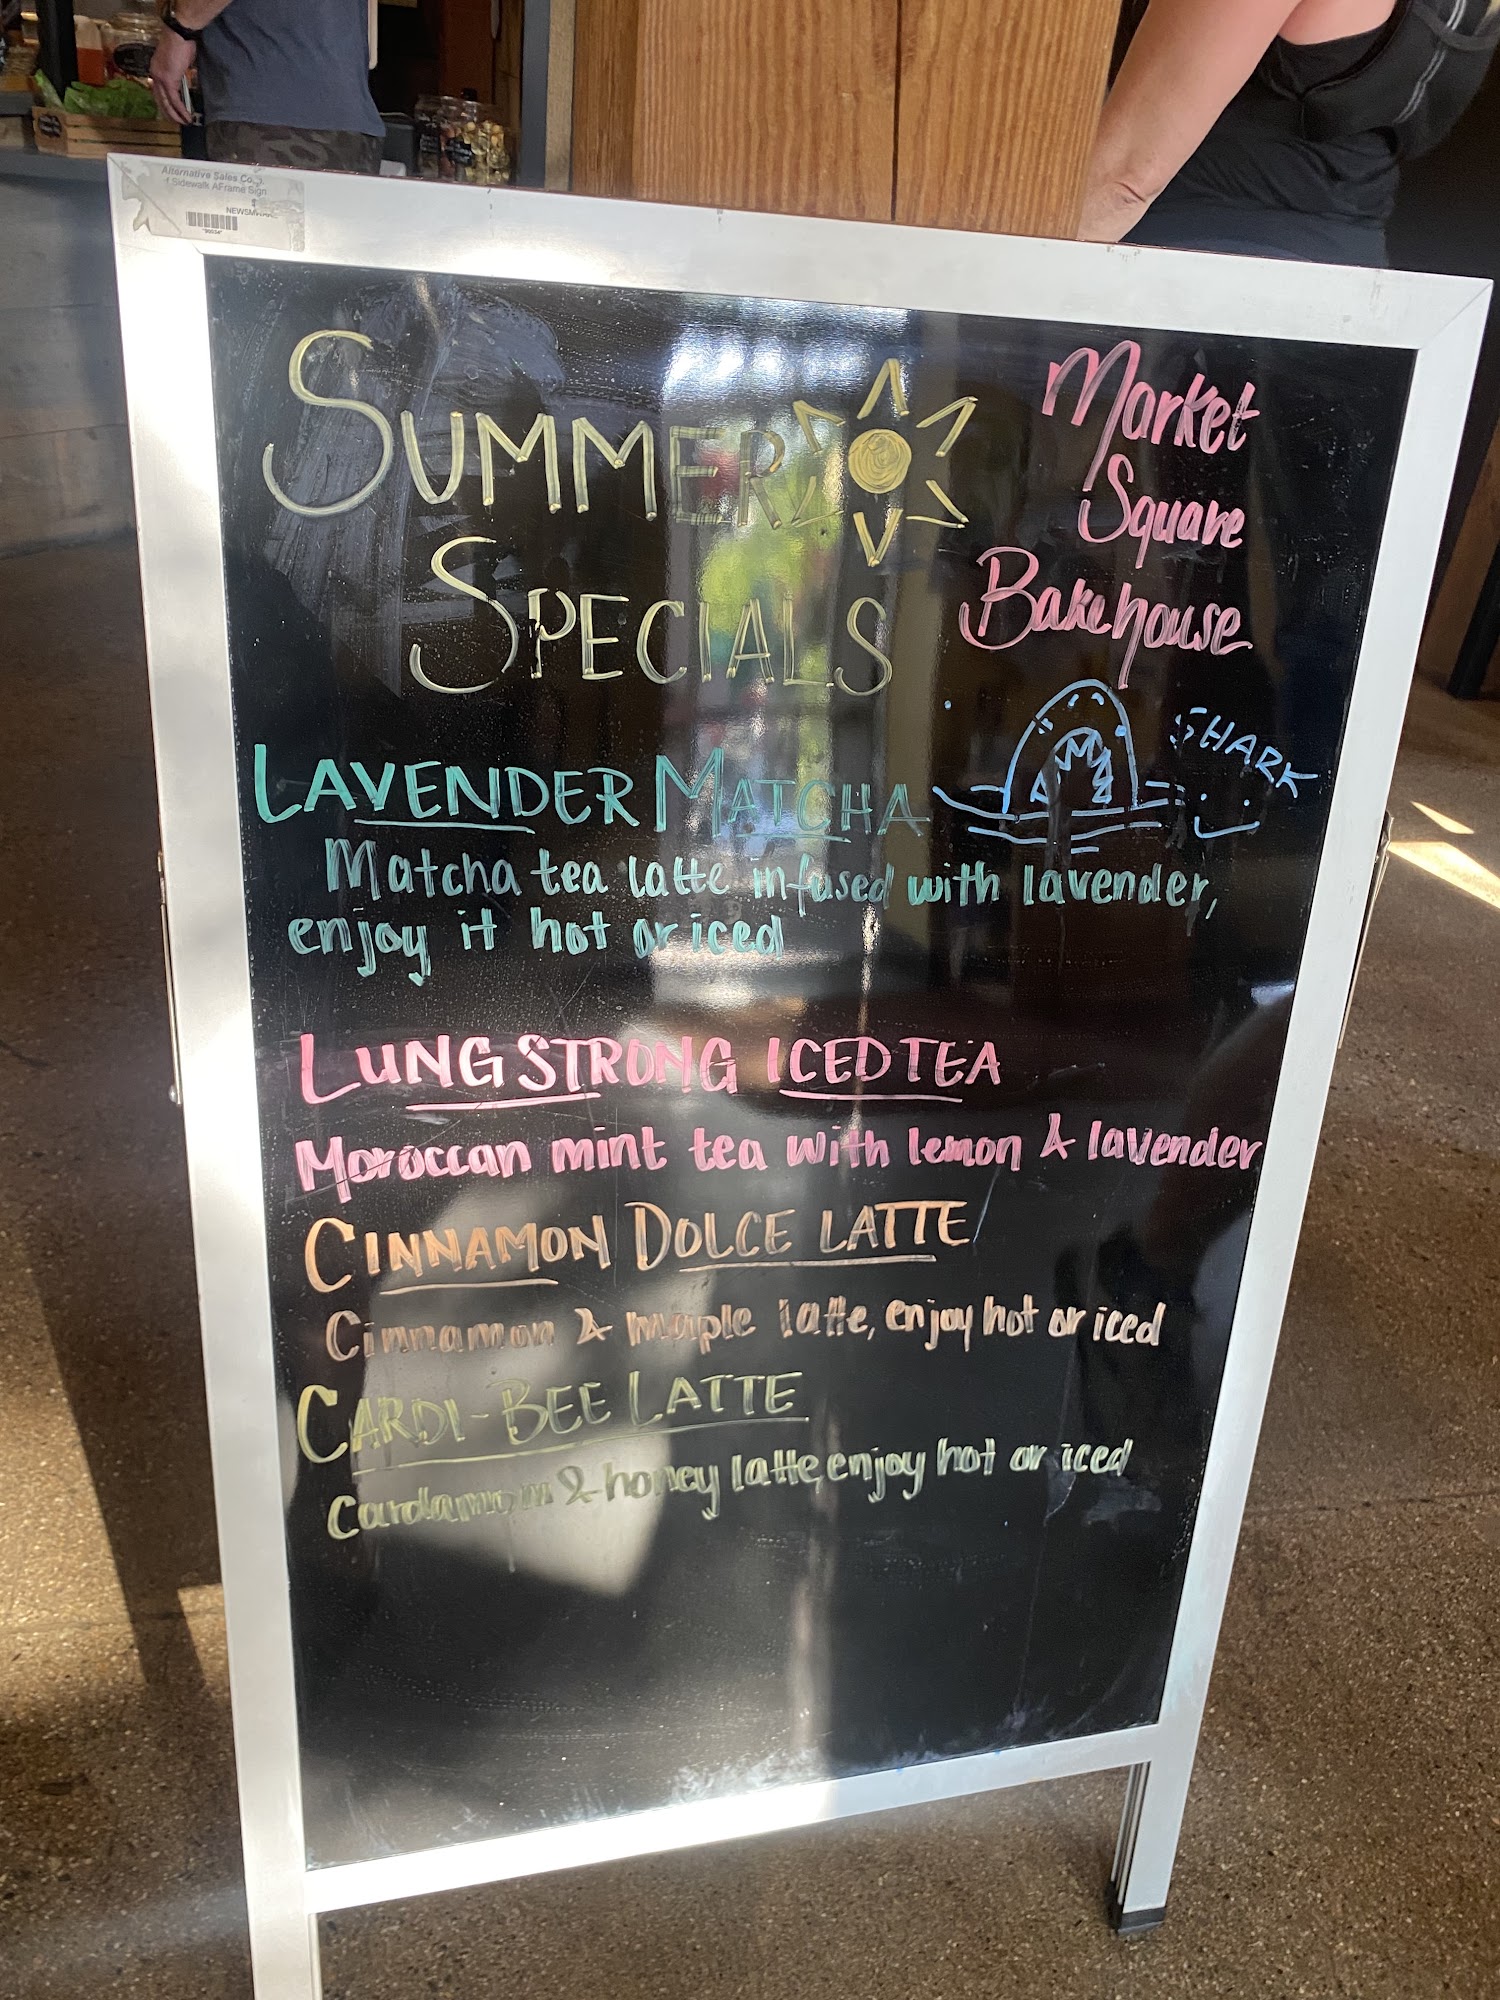 Alternative Sales Co.
Sidewalk AFrame Sign
SUMMER
SPECIALS
Market
Square
Bakehouse
SHARK
LAVENDER MATCHA
Matcha tea latte infused with lavender,
enjoy it hot or iced
LUNGSTRONG ICED TEA
Moroccan mint tea with lemon & lavender
CINNAMON DOLCE LATTE
Cinnamon & maple latte, enjoy hot or iced
CARDI-BEE LATTE
Cardamom & honey latte, enjoy hot or iced